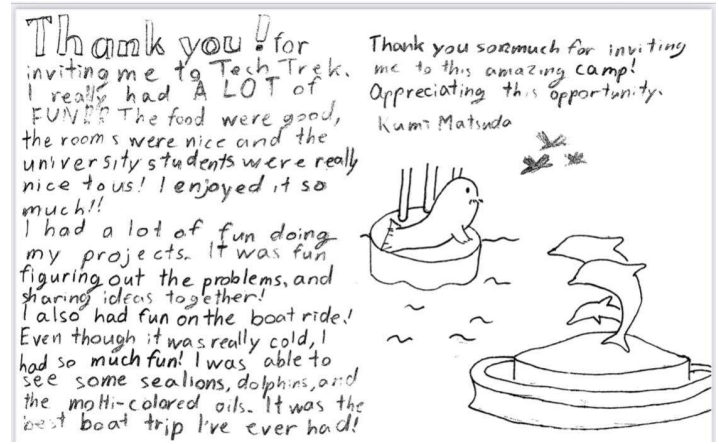 Thank you! for
inviting me to Tech Trek.
I really had A LOT of
FUN!!! The food were good,
the rooms were nice and the
university students were really
nice to us! I enjoyed it so
much!!
I had a lot of fun doing
my projects. It was fun
figuring out the problems, and
sharing ideas together!
I also had fun on the boat ride!
Even though it was really cold, I
had so much fun! I was able to
see some sealions, dolphins, and
the molti-colored oils. It was the
best boat trip I've ever had!
Thank you so much for inviting
me to this amazing camp!
Appreciating this opportunity.
Kumi Matsuda